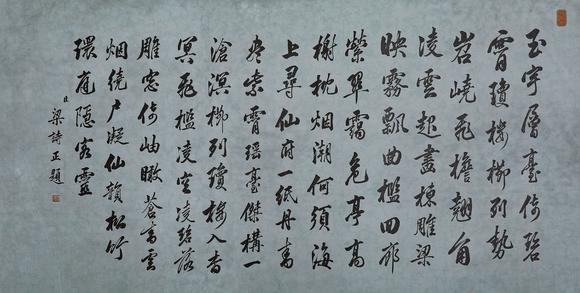 玉宇層臺倚碧
霄瓊樓櫛列勢
岧嶢飛檐翹角
凌雲起畫棟雕梁
映霧飄曲檻回廊
縈翠靄危亭高
榭枕烟潮何須海
上尋仙府一紙丹青
素霄瑤臺傑構一
滄溟櫛列瓊樓入杳
冥飛檻凌空凌碧落
雕窗倚岫瞰蒼青雲
烟繞户凝仙籟松竹
環庭隱客靈
梁詩正題